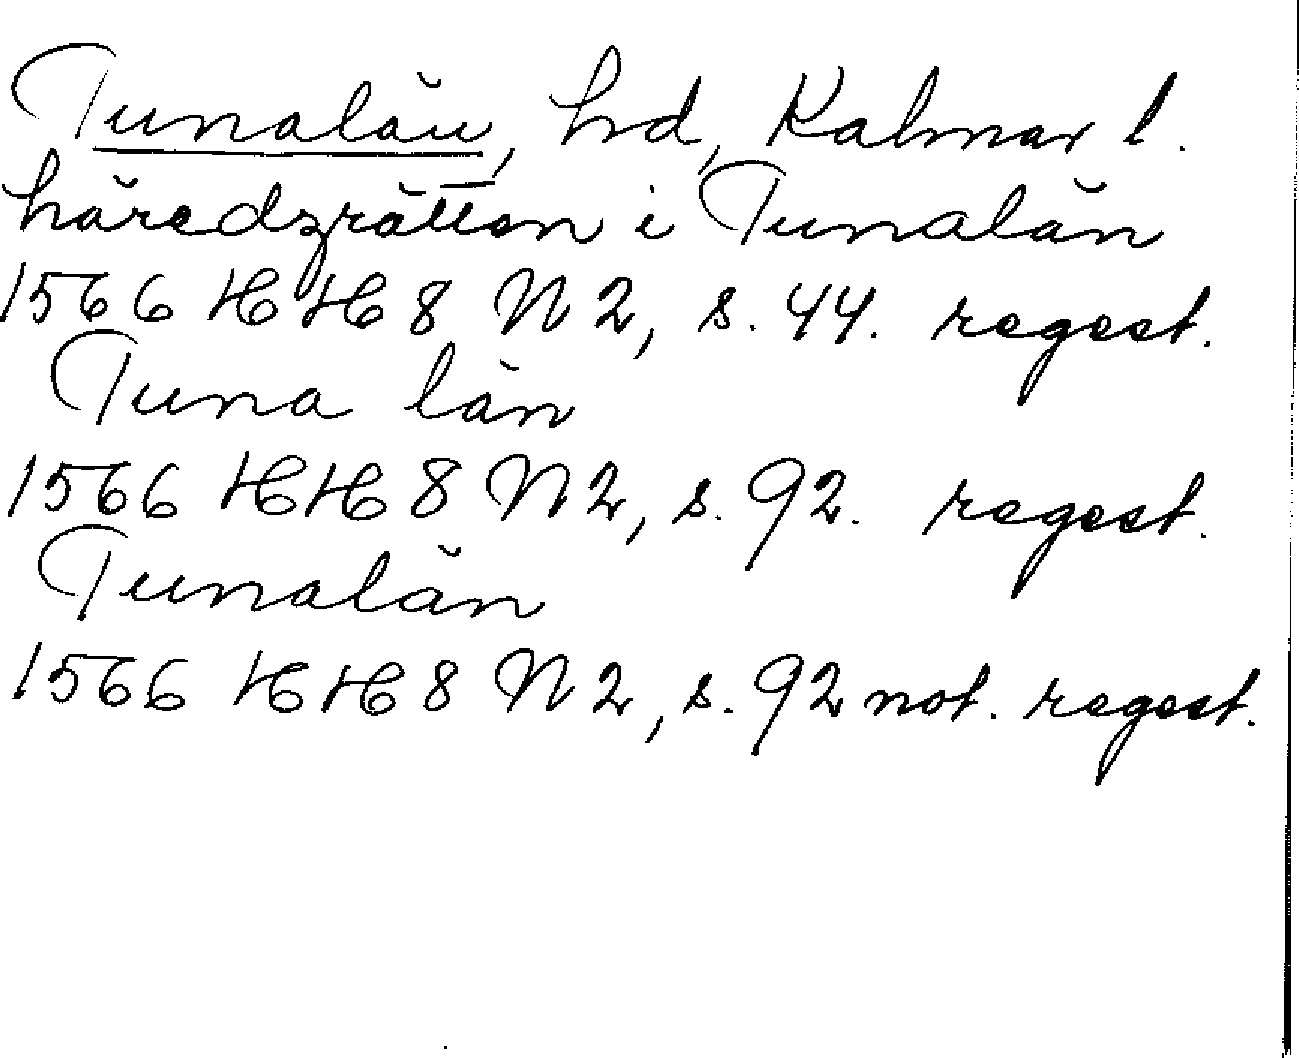 Tunalän, hd, Kalmar l.
häredzrätten i Tunalän
1566 HH 8 N 2, s. 44. regest.
Tuna län
1566 HH 8 N 2, s. 92. regest.
Tunalän
1566 HH 8 N 2, s. 92 not. regest.